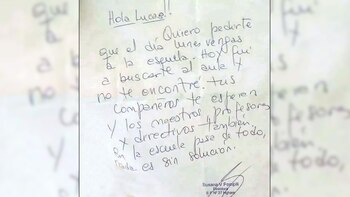 Hola Lucas!!
Quiero pedirte
que el día lunes vengas
a la escuela. Hoy fui
a buscarte al aula y
no te encontré. tus
compañeros te esperan
y los maestros, profesores
y directivos también
Sin la escuela pese a todo,
nada es sin solución.
Susana V
Directora